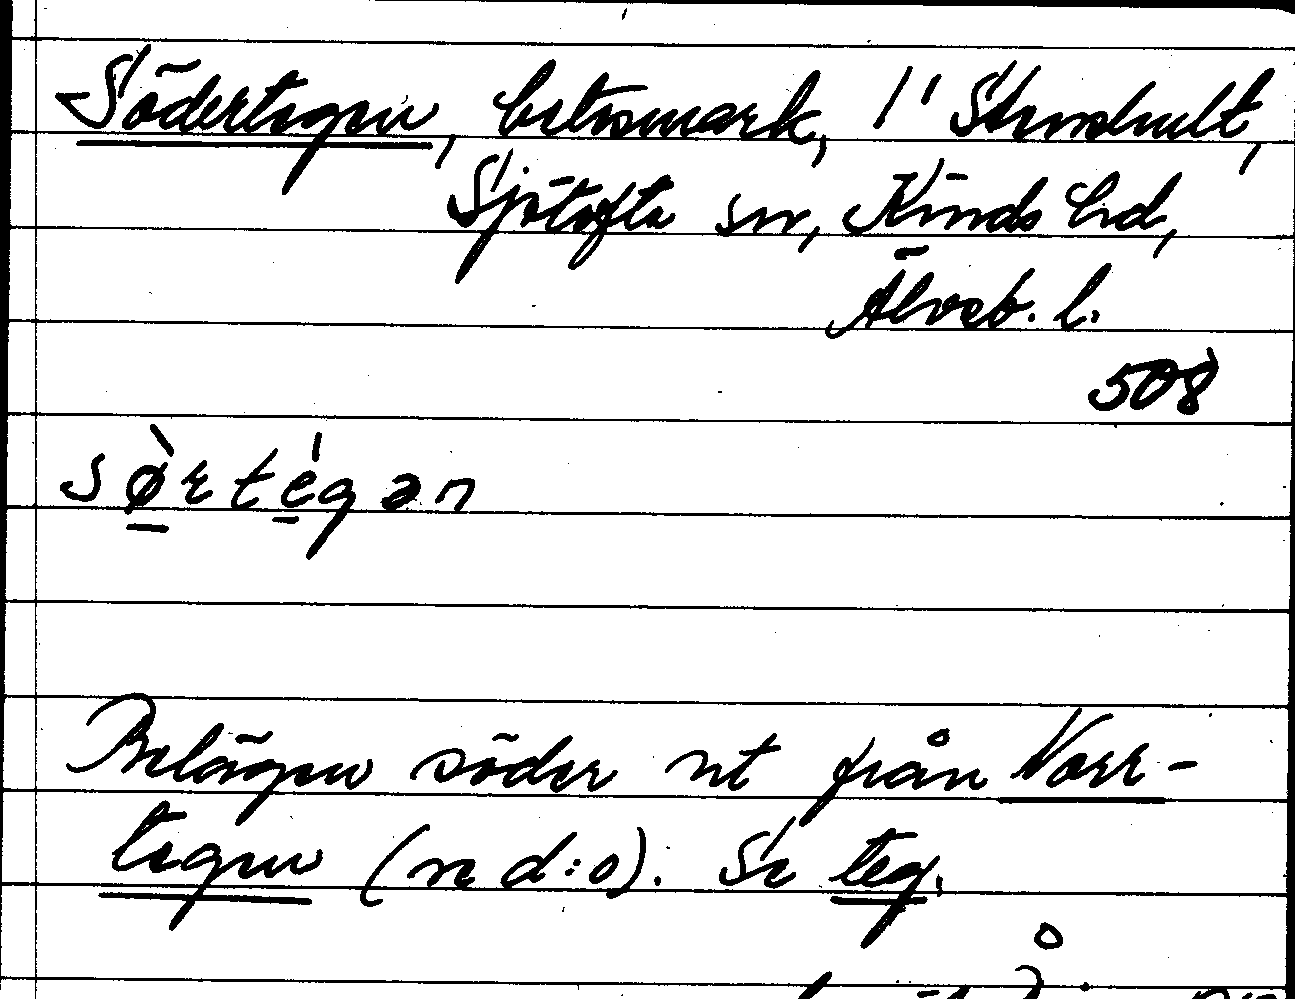 Södertegen, betesmark, 1' Stenshult,
Sjötofta sn, Kinds hd,
Älvsb. l.
508
sø̀rtégən
Belägen söder ut från Norr-
tegen (se d:o). Se teg.